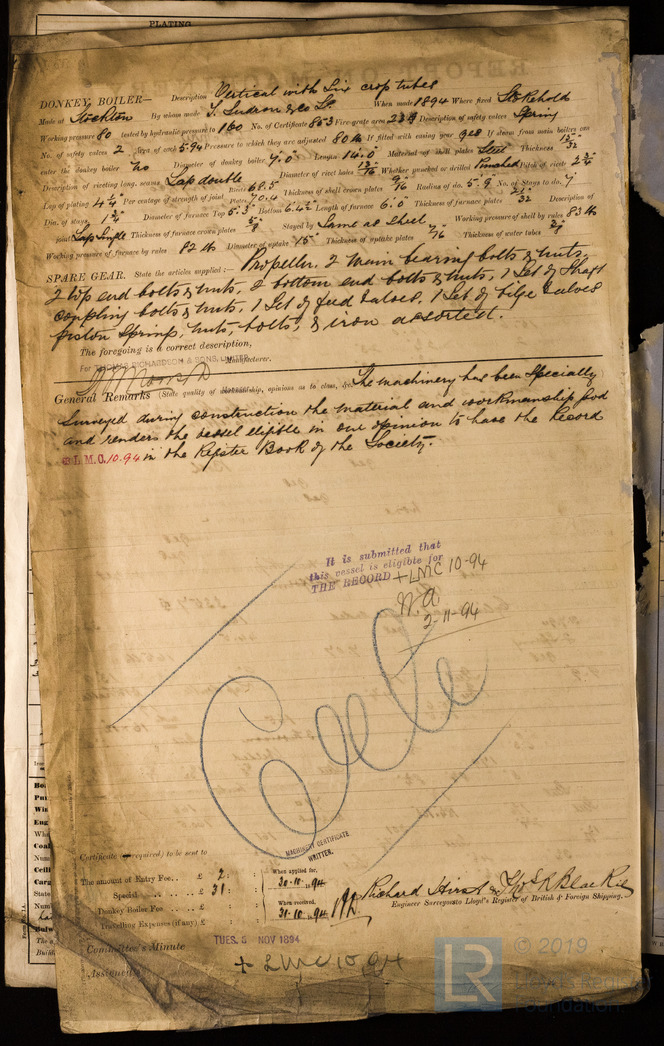 PLATING
DONKEY BOILER— Description Vertical with Six crop tubes
Made at Stockton By whom made T. Sudron & Co Ld. When made 1894 Where fixed Stokehold
Working pressure 80 tested by hydraulic pressure to 160 No. of Certificate 853 Fire-grate area 23 Description of safety valves Spring
No. of safety valves 2 Area of each 5.94 Pressure to which they are adjusted 80 lb If fitted with easing gear yes If steam from main boilers can
enter the donkey boiler no Diameter of donkey boiler 7'.0" Length 14'.0" Material of shell plates Steel Thickness 15/32
Description of riveting long. seams Lap double Diameter of rivet holes 13/16 Whether punched or drilled Punched Pitch of rivets 2 3/4
Lap of plating 4 1/4 Per centage of strength of joint Rivets 68.5 Plates 70.4 Thickness of shell crown plates 9/16 Radius of do. 5'.9" No. of Stays to do. 7
Dia. of stays 1 3/4 Diameter of furnace Top 5'.3" Bottom 6'.4 1/2" Length of furnace 6'.0" Thickness of furnace plates 21/32 Description of
joint Lap Single Thickness of furnace crown plates 5/8 Stayed by Same as Shell Working pressure of shell by rules 83 lb
Working pressure of furnace by rules 82 lb Diameter of uptake 15" Thickness of uptake plates 7/16 Thickness of water tubes 3/8
SPARE GEAR. State the articles supplied:— Propeller, 2 main bearing bolts & nuts,
2 top end bolts & nuts, 2 bottom end bolts & nuts, 1 Set of Shaft
coupling bolts & nuts, 1 Set of feed valves, 1 Set of bilge valves
piston Springs, nuts, bolts, & iron assorted.
The foregoing is a correct description,
For THOMAS RICHARDSON & SONS, LIMITED Manufacturer.
General Remarks (State quality of workmanship, opinions as to class, &c. The machinery has been Specially
Surveyed during construction the material and workmanship good
and renders the vessel eligible in our opinion to have the Record
L.M.C. 10.94 in the Register Book of the Society.
It is submitted that
this vessel is eligible for
THE RECORD + LMC 10-94
2-11-94
Certificate (if required) to be sent to
MACHINERY CERTIFICATE
WRITTEN.
The amount of Entry Fee.. £ 2 :
Special .. £ 31 :
Donkey Boiler Fee .. £ :
Travelling Expenses (if any) £ :
When applied for,
30.10.94
When received,
31.10.94
Richard Hirst & Thos R Blackie
Engineer Surveyors to Lloyd's Register of British & Foreign Shipping.
Committee's Minute TUES. 6 NOV 1894
Assigned + LMC 10,94
LR © 2019
Lloyd's Register
Foundation